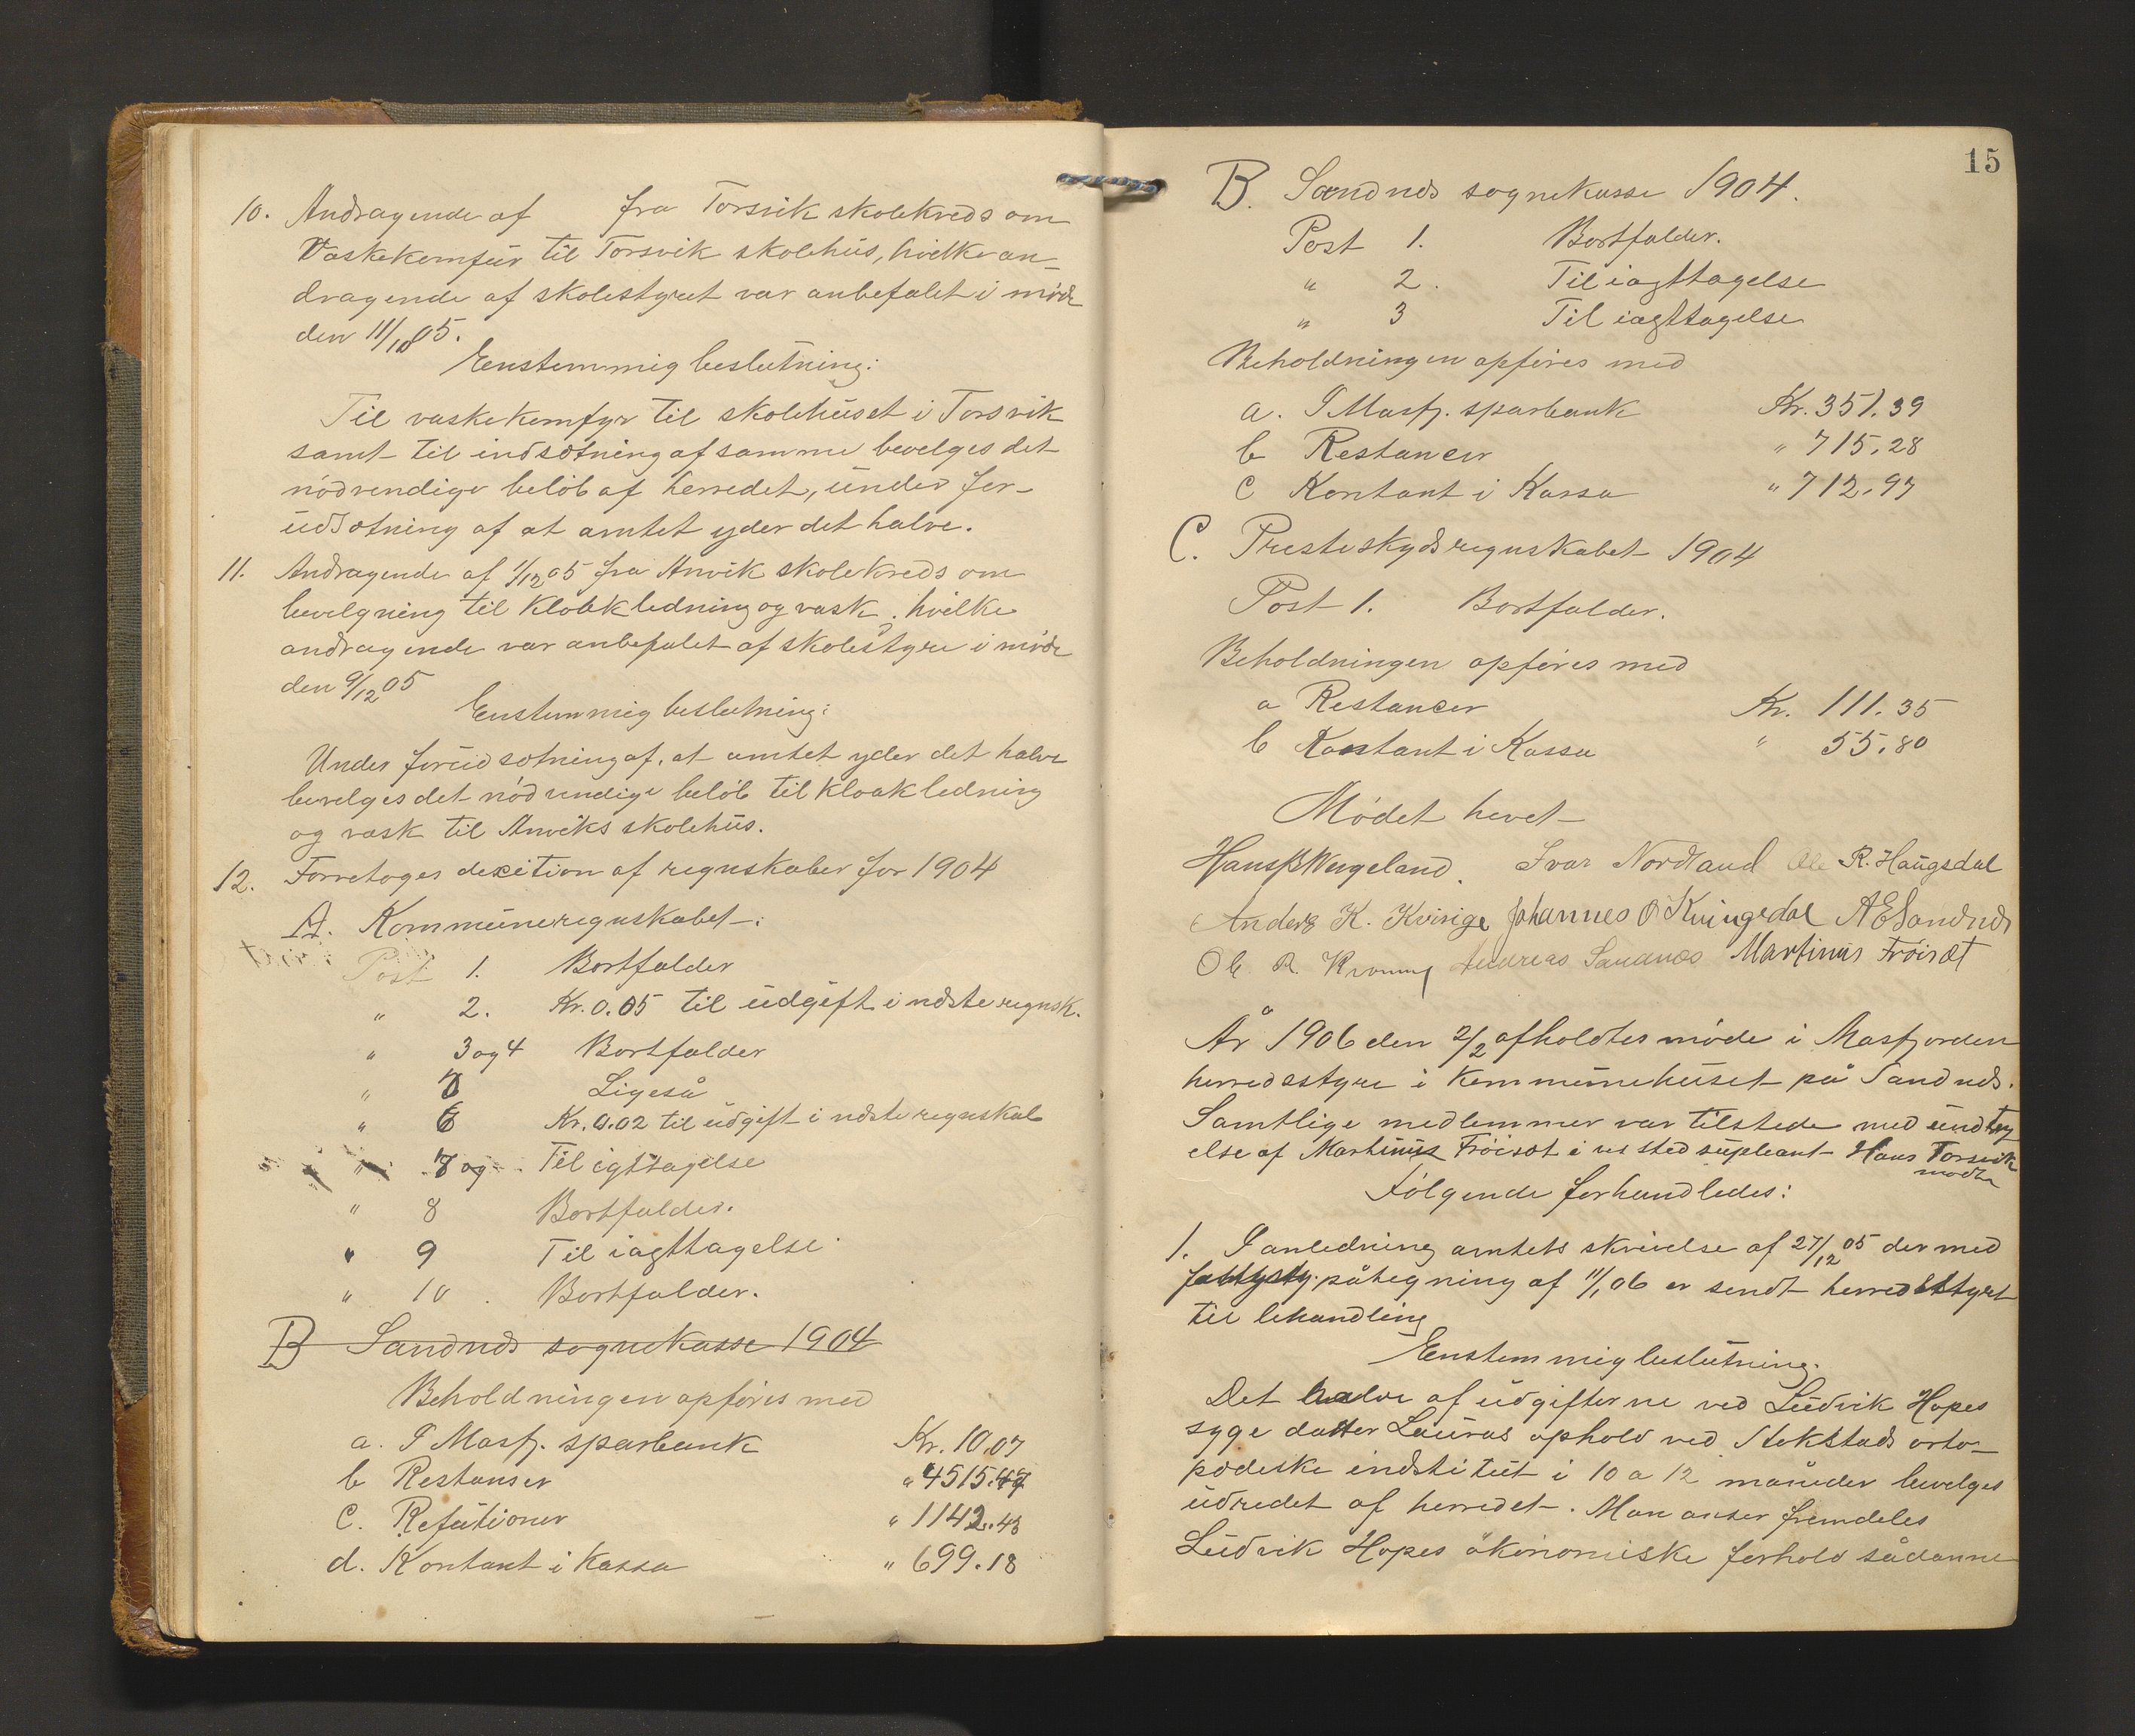 10. Andragende af fra Torsvik skolekreds om
Vaskekomfür til Torsvik skolehüs, hvilke an-
dragende af skolestyret var anbefalet i møde
den 11/10 05.
Enstemmig beslutning:
Til vaskekomfyr til skolehüset i Torsvik
samt til indsætning af samme bevelges det
nødvendige beløb af herredet, ünder for-
üdsætning af at amtet yder det halve.
11. Andragende af 1/12 05 fra Anvik skolekreds om
bevelgning til kloakledning og vask, hvilke
andragende var anbefalet af skolestyre i møde
den 9/12 05
Enstemmig beslutning:
Under forüdsætning af, at amtet yder det halve
bevelges det nødvendige beløb til kloakledning
og vask til Anviks skolehüs.
12. Forretoges desition af regnskaber for 1904
A. Kommüneregnskabet:
Post 1. Bortfalder
" 2. Kr. 0.05 til üdgift i næste regnsk.
" 3 og 4 Bortfalder
" Ligeså
" 6 Kr. 0.02 til üdgift i næste regnskab
" 7 og Til igttagelse
" 8 Bortfalder.
" 9 Til iagttagelse
" 10 Bortfalder.
B Sandnæs sognekasse 1904
Beholdningen opføres med
a. I Masfj. sparbank Kr. 10.07
b Restanser " 4515.47
c. Refütioner " 1142.43
d. Kontant i Kassa " 699.18
15
B. Sandnæs sognekasse 1904.
Post 1. Bortfalder.
" 2. Til iagttagelse
" 3 Til iagttagelse
Beholdningen opføres med
a. I Masfj. sparbank Kr. 351.39
b Restancer " 715.28
c Kontant i Kassa " 712.97
C. Presteskydsregnskabet 1904
Post 1. Bortfalder.
Beholdningen opføres med
a Restancer Kr. 111.35
b Kontant i Kassa " 55.80
Mødet hevet
Hans B Wergeland. Ivar Nordland Ole R. Haügsdal
Anders K. Kvinge Johannes O Kvingedal A E Sandnæs
Ole R. Andreas Sandnæs Martinus Frøisæt
År 1906 den 2/2 afholdtes møde i Masfjorden
herredsstyre i kommünehüset på Sandnæs.
Samtlige medlemmer var tilstede med ündtag
else af Martinüs Frøisæt i vs sted süpleant Hans Torsvik
mødte
Følgende forhandledes:
1. I anledning amtets skrivelse af 27/12 05 der med
fattigsty. påtegning af 11/1 06 er sendt herredsstyret
til behandling
Enstemmig beslütning.
Det halve af üdgifterne ved Lüdvik Hopes
syge datter Laüras ophold ved Stekstads orto-
pædiske indstitüt i 10 a 12 måneder bevelges
üdredet af herredet. Man anser fremdeles
Lüdvik Hopes økonomiske forhold sådanne